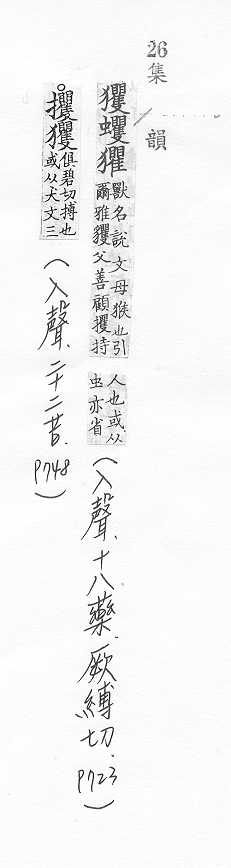 26
集韻
玃蠼𤣓
獸名說文母猴也引
爾雅玃父善顧攫持
人也或从
虫亦省
(入聲.十八藥.厥縛切.P723)
○攫玃
俱碧切搏也
或从犬文三
(入聲.二十二昔.P748)